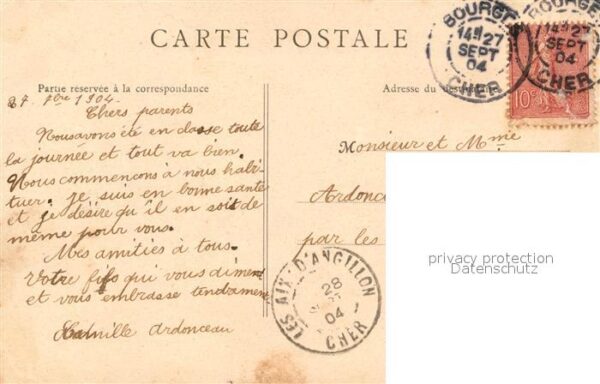 CARTE POSTALE
BOURGES
14H 27
SEPT
04
CHER
BOURGES
14H 27
SEPT
04
CHER
10c
Partie réservée à la correspondance
Adresse du
27 7bre 1904.
Chers parents
Nous avons été en classe toute
la journée et tout va bien.
Nous commençons à nous habi-
tuer. je suis en bonne santé
et je désire qu'il en soit de
même pour vous.
Mes amitiés à tous.
Votre fifs qui vous diment
et vous embrasse tendament
Camille Ardonceau
Monsieur et Mme
Ardonce
par les
LES AIX-D'ANGILLON
28
04
CHER
privacy protection
Datenschutz